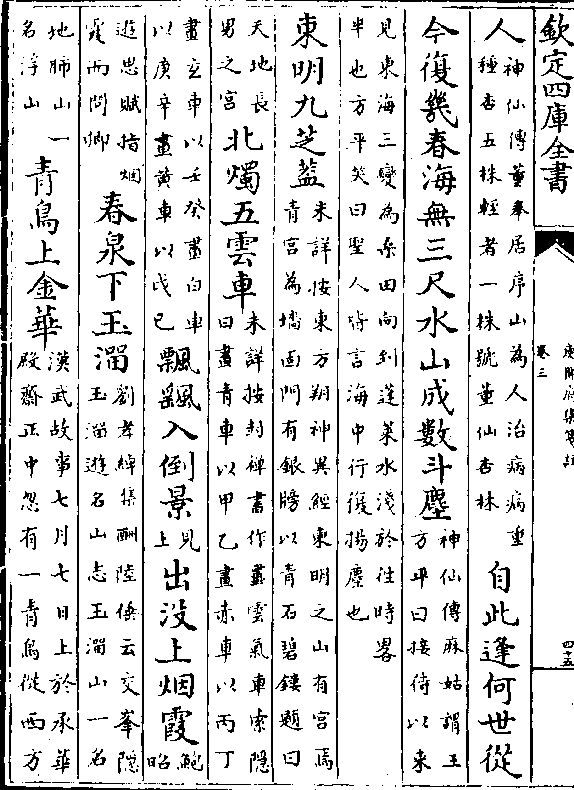 欽定四庫全書
庾開府集箋註
卷三
四十五
人神仙傳董奉居庐山為人治病病重種杏五株輕者一株號董仙杏林自此逢何世從
今復幾春海無三尺水山成數斗塵神仙傳麻姑謂王方平曰接待以来
見東海三變為桑田向到蓬萊水淺於往時畧半也方平笑曰聖人皆言海中行復揚塵也
東明九芝葢未詳按東方朔神異經東明之山有宫焉青宫為墻面門有銀牓以青石碧鏤題曰
天地長男之宫北燭五雲車未詳按封禪書作畫雲氣車索隱曰畫青車以甲乙畫赤車以丙丁
畫玄車以壬癸畫白車以庚辛畫黄車以戊巳飄飖入倒景見上出没上烟霞鮑昭
遊思賦指烟霞而問卿春泉下玉溜劉孝綽集酬陸倕云交峯隱玉溜遊名山志玉溜山一名
地肺山一名浮山青鳥上金華漢武故事七月七日上於承華殿齋正中忽有一青鳥從西方